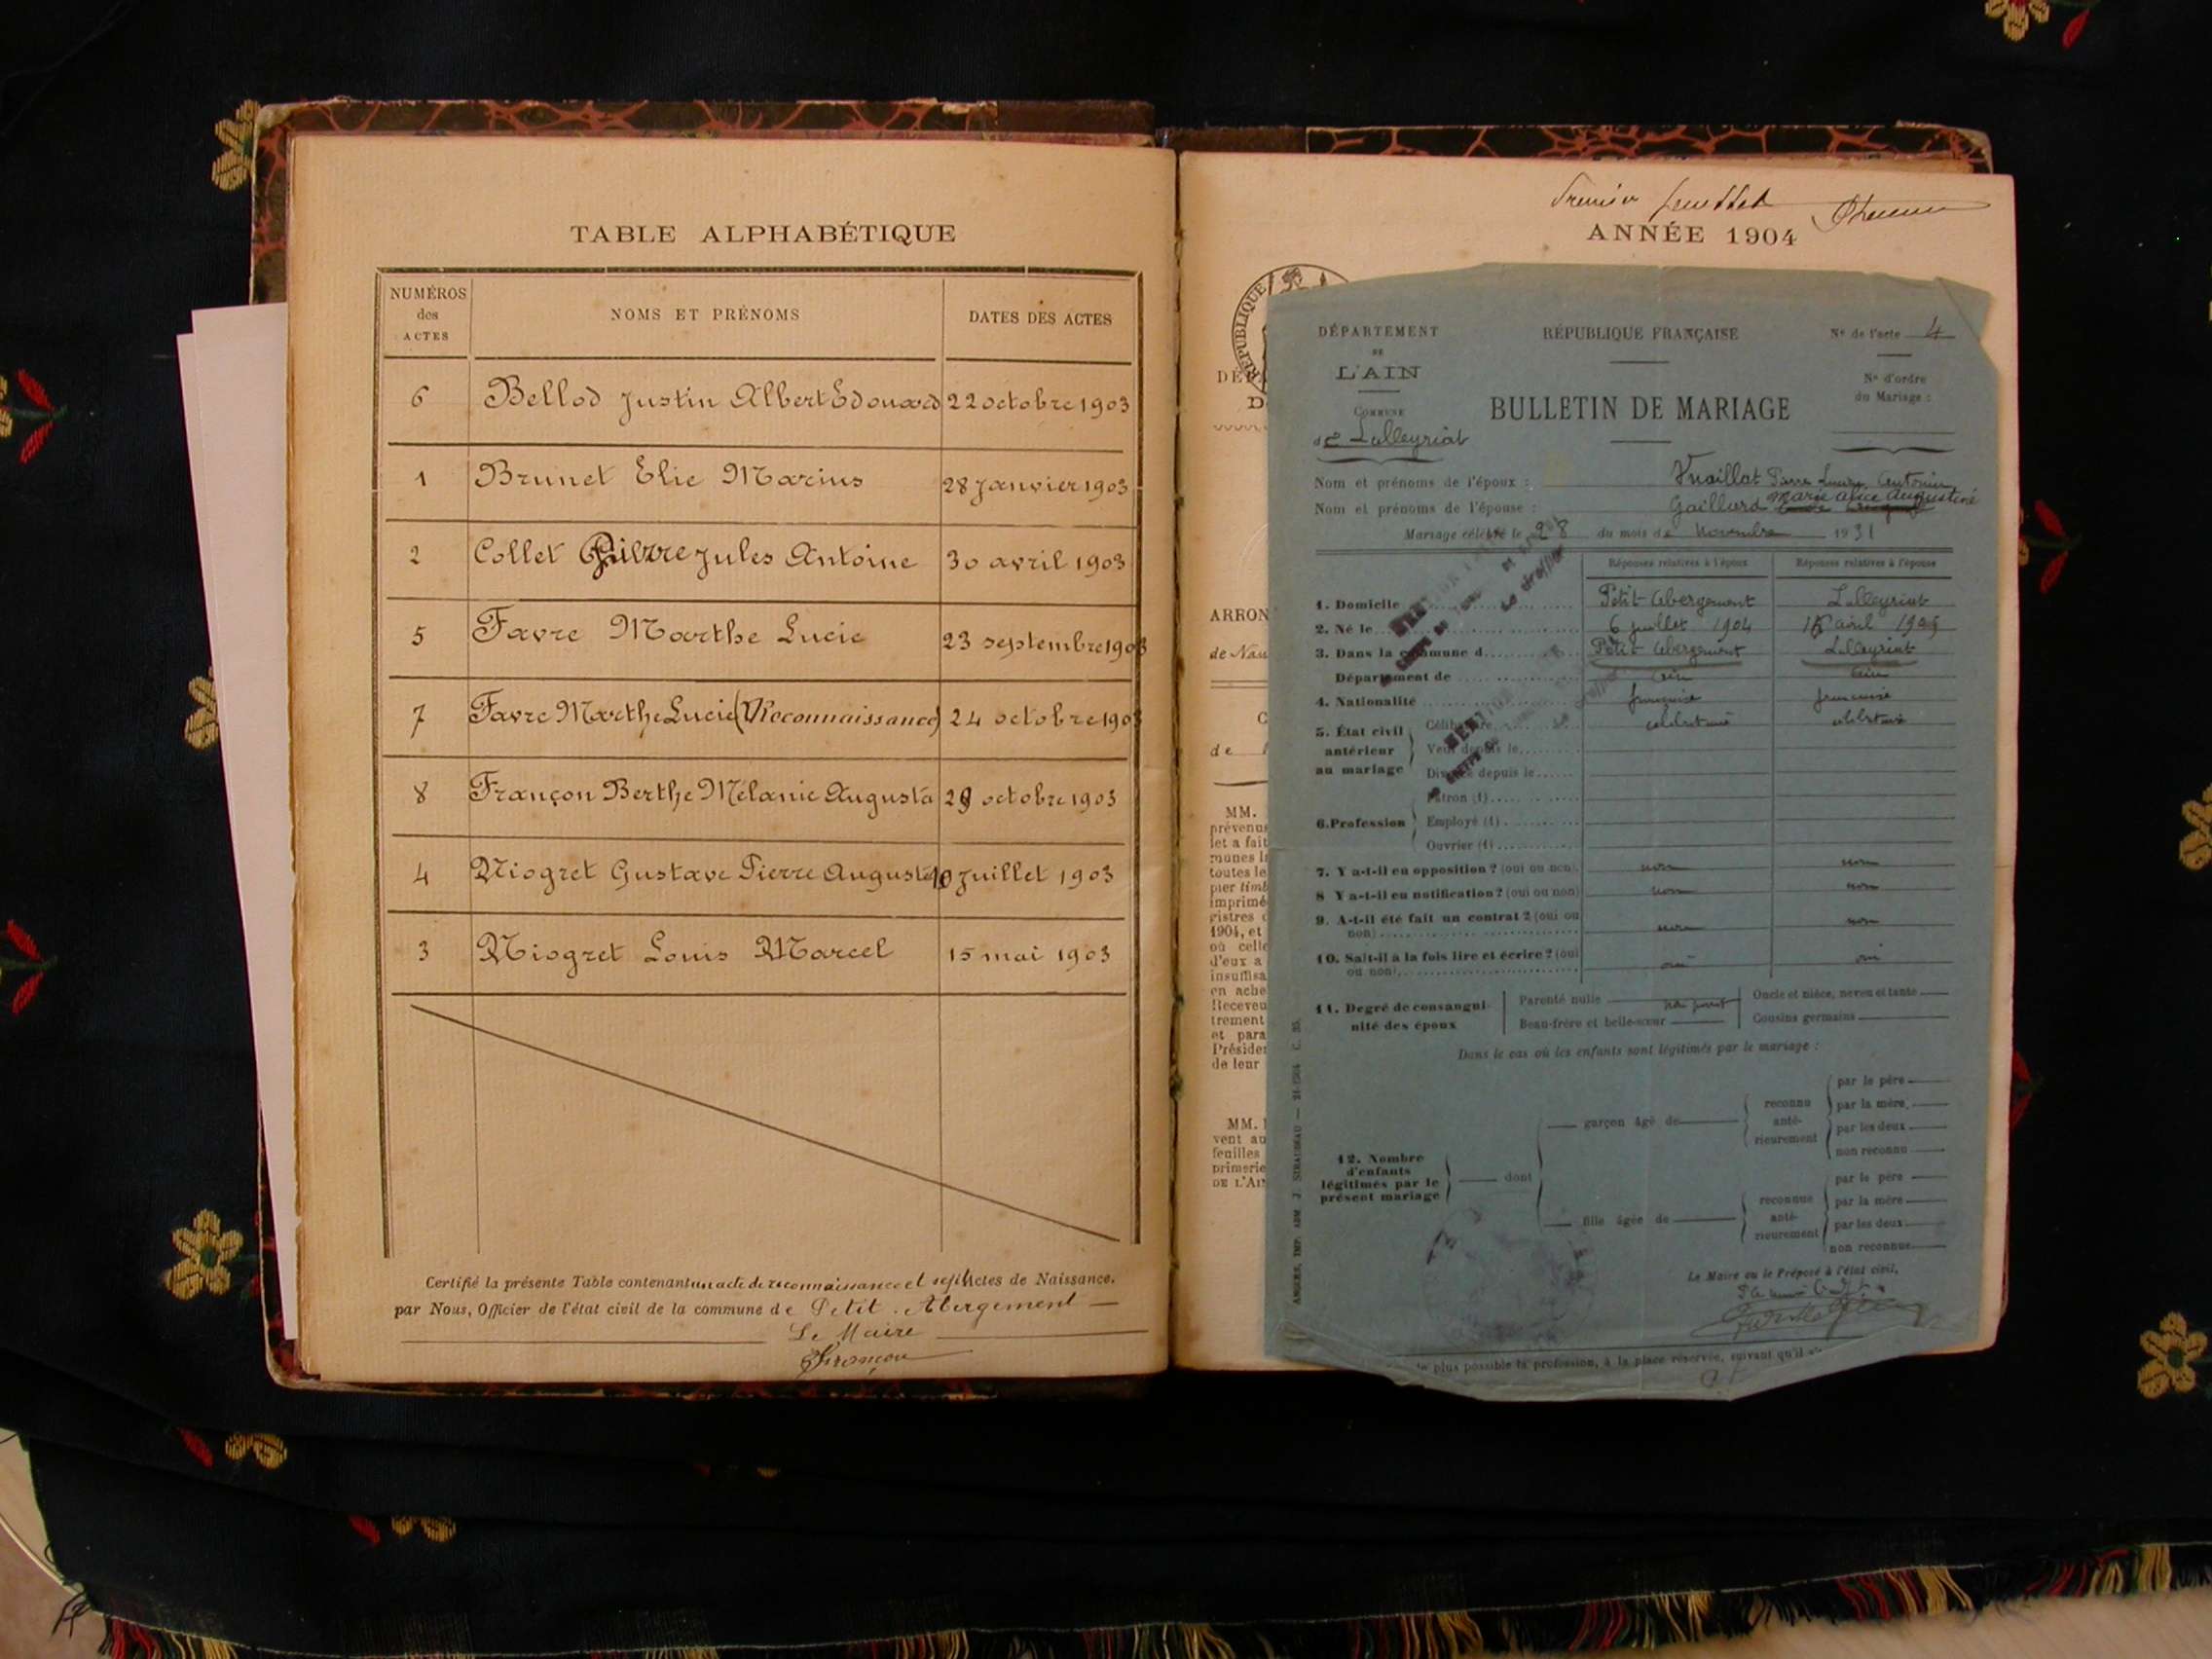 TABLE ALPHABÉTIQUE
NUMÉROS
des
ACTES
NOMS ET PRÉNOMS
DATES DES ACTES
6 Bellod Justin Albert Edouard 22 octobre 1903
1 Brunet Elie Marius 28 Janvier 1903
2 Collet Pierre Jules Antoine 30 avril 1903
5 Favre Marthe Lucie 23 septembre 1903
7 Favre Marthe Lucie (Reconnaissance) 24 octobre 1903
8 Françon Berthe Mélanie Augusta 29 octobre 1903
4 Niogret Gustave Pierre Auguste 10 Juillet 1903
3 Niogret Louis Marcel 15 mai 1903
Certifié la présente Table contenant un acte de reconnaissance et sept Actes de Naissance.
par Nous, Officier de l'état civil de la commune de Petit-Abergement
Le Maire
Françon
Premier feuillet
ANNÉE 1904
RÉPUBLIQUE
ARRON
de Nan
de
MM.
prévenus
let a fait
munes
toutes le
pier timb
imprimé
gistres
1904, et
où celle
d'eux a
insuffisa
en ache
Receveu
trement
et para
Présiden
de leur
MM.
vent au
feuilles
primerie
DE L'AIN
DÉPARTEMENT
DE
L'AIN
COMMUNE
de Lalleyriat
RÉPUBLIQUE FRANÇAISE
BULLETIN DE MARIAGE
N° de l'acte 4
N° d'ordre
du Mariage :
Nom et prénoms de l'époux : Vuaillat Pierre Louis Antonin
Nom et prénoms de l'épouse : Gaillard Marie Alice Augustine
Mariage célébré le 28 du mois de Novembre 1931
Réponses relatives à l'époux
Réponses relatives à l'épouse
1. Domicile Petit Abergement Lalleyriat
2. Né le 6 juillet 1904 avril
3. Dans la commune d Petit Abergement Lalleyriat
Département de Ain Ain
4. Nationalité française française
5. État civil
antérieur
au mariage
Célibataire célibataire célibataire
Veuf depuis le
Divorcé depuis le
6. Profession
Patron (1)
Employé (1)
Ouvrier (1)
7. Y a-t-il eu opposition ? (oui ou non) non non
8 Y a-t-il eu notification ? (oui ou non) non non
9. A-t-il été fait un contrat ? (oui ou
non) non non
10. Sait-il à la fois lire et écrire ? (oui
ou non) oui oui
11. Degré de consangui-
nité des époux
Parenté nulle
Beau-frère et belle-sœur
Oncle et nièce, neveu et tante
Cousins germains
Dans le cas où les enfants sont légitimés par le mariage :
12. Nombre
d'enfants
légitimés par le
présent mariage
dont
garçon âgé de
reconnu
anté-
rieurement
par le père
par la mère
par les deux
non reconnu
fille âgée de
reconnue
anté-
rieurement
par le père
par la mère
par les deux
non reconnue
Le Maire ou le Préposé à l'état civil,
le plus possible la profession, à la place réservée, suivant qu'il
ANGERS, IMP. ADM. J. SIRAUDEAU